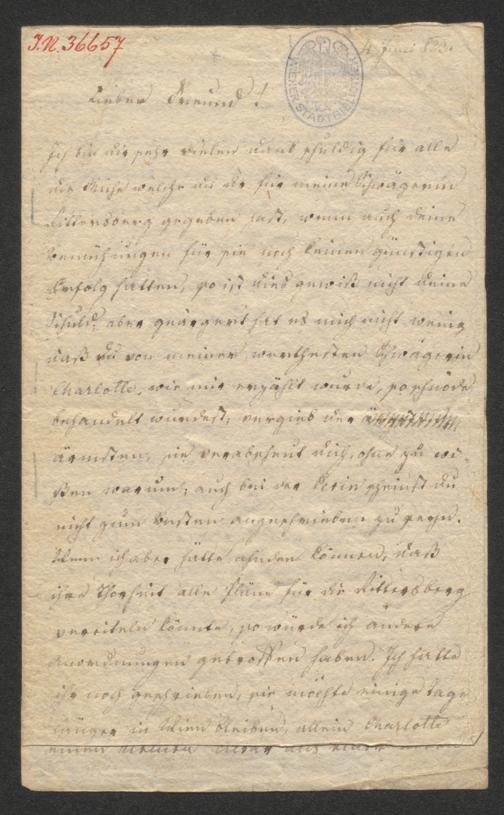 J.N. 36657
4 Juni 833.
WIENER STADTBIBLIOTHEK
Lieber Freund!
Ich bin dir sehr vielen Dank schuldig für alle
die Mühe welche du dir für meine Schwägerin
Rittersberg gegeben hast, wenn auch deine
Bemühungen für sie noch keinen günstigen
Erfolg hatten, so ist dies gewiß nicht deine
Schuld, aber geärgert hat es mich nicht wenig
daß du von meiner werthesten Schwägerin
Charlotte, wie mir erzählt wurde, so schnöde
behandelt wurdest, vergieb der
ärmsten, sie verabscheut dich, ohne zu wi-
ßen warum, auch bei der scheinst du
nicht zum Besten angeschrieben zu seyn.
Wenn ich aber hätte ahnden können, daß
ihre Thorheit alle Pläne für die Rittersberg
vereiteln könnte, so würde ich andere
Anordnungen getroffen haben. Ich hatte
ihr noch geschrieben, sie möchte einige Tage
länger in Wien bleiben, allein Charlotte